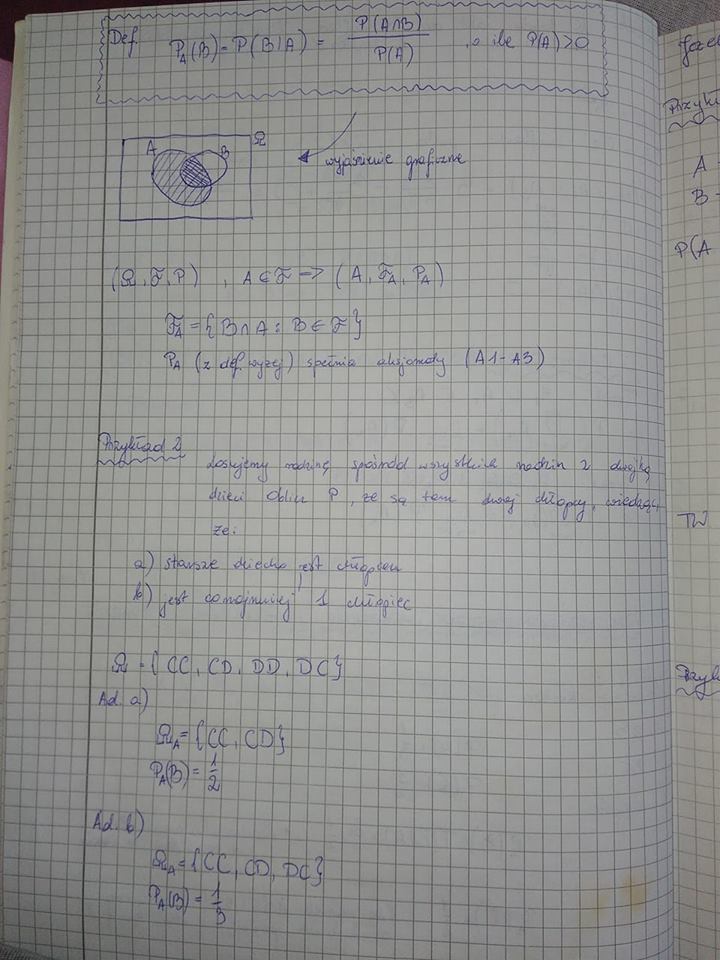 Def. P_A(B) = P(B|A) = P(A∩B) / P(A) , o ile P(A)>0
A B Ω
wyjaśnienie graficzne
(Ω, F, P) , A ∈ F => (A, F_A, P_A)
F_A = {B∩A : B ∈ F}
P_A (z def. wyżej) spełnia aksjomaty (A1-A3)
Przykład 2
Losujemy rodzinę spośród wszystkich rodzin z dwójką
dzieci. Oblicz P, że są tam dwaj chłopcy, wiedząc,
że:
a) starsze dziecko jest chłopcem
b) jest conajmniej 1 chłopiec
Ω = {CC, CD, DD, DC}
Ad. a)
Ω_A = {CC, CD}
P_A(B) = 1/2
Ad. b)
Ω_A = {CC, CD, DC}
P_A(B) = 1/3
A
B -
P(A
TW